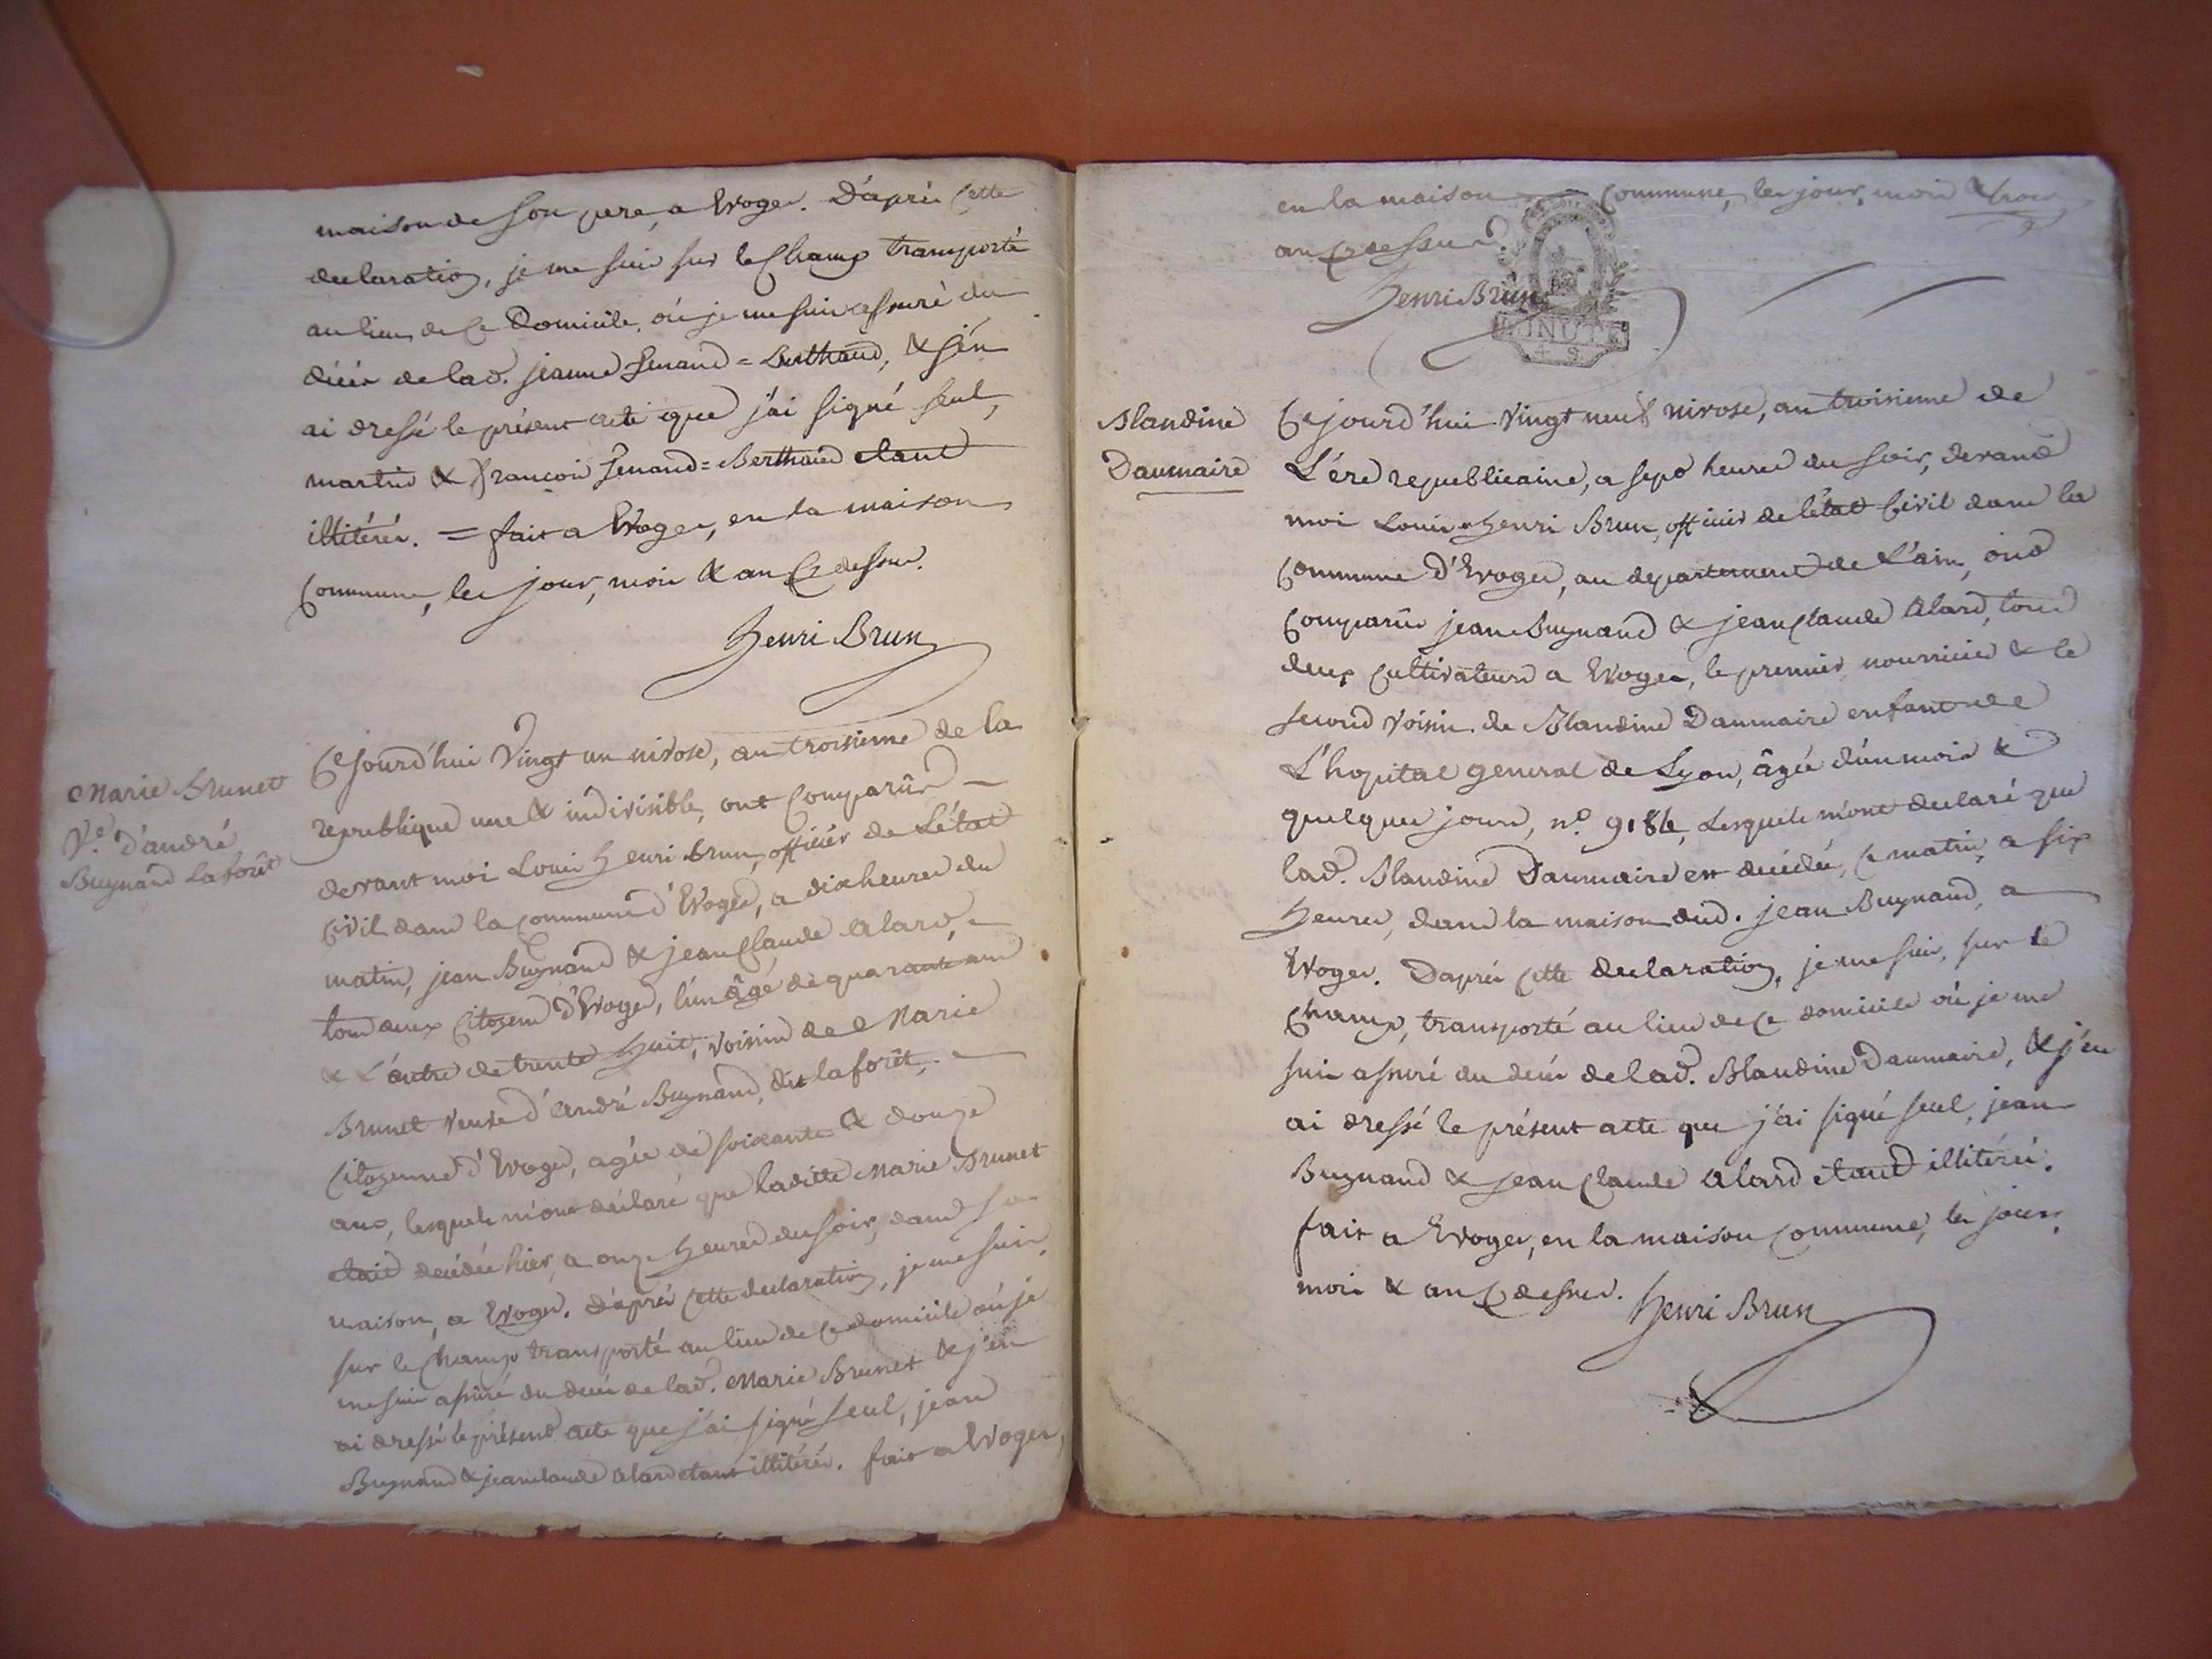 maison de son pere, a Evoges. D'après cette
declaration, je me suis sur le champ transporté
au lieu de ce Domicile, où je me suis assuré du
décès de lad. jeanne Jenand = Berthaud, & j'en
ai dressé le présent acte que j'ai signé seul,
martin & françois Jenand = Berthaud etant
illitérés. = fait a Evoges, en la maison
commune, les jour, mois & an cy dessus.
Henri Brun
Marie Brunet
Ve. D'andré
Bugnand laforêt
Cejourd'hui Vingt un nivose, an troisieme de la
republique une & indivisible, ont comparûs
devant moi Louis henri Brun, officier de l'état
civil dans la commune d'Evoges, a dix heures du
matin, jean Bugnand & jean Claude Alard,
tous deux citoyens d'Evoges, l'un âgé de quarante ans
& l'autre de trente huit, voisins de Marie
Brunet veuve d'andré Bugnand, dit laforêt,
citoyenne d'Evoges, agée de soixante & douze
ans, lesquels m'ont déclaré que laditte Marie Brunet
etait decédée hier, a onze heures du soir, dans sa
maison, a Evoges. D'après cette declaration, je me suis,
sur le champ transporté au lieu de ce domicile où je
me suis assuré du decès de lad. Marie Brunet & j'en
ai dressé le présent acte que j'ai signé seul, jean
Bugnand & jean claude alard etant illitérés. fait a Evoges,
en la maison commune, les jour, mois & an
cy dessus
Henri Brun
MINUTE
4 S
Blandine
Daumaire
Cejourd'hui Vingt neuf nivose, an troisieme de
L'ere republicaine, a sept heures du soir, devant
moi Louis henri Brun, officier de l'état civil dans la
commune d'Evoges, au departement de l'ain, ont
comparûs jean Bugnand & jean Claude Alard, tous
deux cultivateurs a Evoges, le premier nourricier & le
second voisin de Blandine Daumaire enfant de
L'hopital general de Lyon, âgée d'un mois &
quelques jours, n.o 9184, Lesquels m'ont declaré que
lad. Blandine Daumaire est decédée, ce matin, a six
heures, dans la maison dud. jean Bugnand, a
Evoges. D'après cette declaration, je me suis, sur le
champ, transporté au lieu de ce domicile où je me
suis assuré du decès de lad. Blandine Daumaire, & j'en
ai dressé le présent acte que j'ai signé seul, jean
Bugnand & jean Claude alard etant illitérés.
fait a Evoges, en la maison commune, les jour,
mois & an cy dessus. Henri Brun